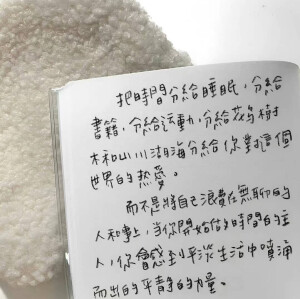 把時間分給睡眠，分給
書籍，分給運動，分給花鳥樹
木和山川湖海分給你對這個
世界的热愛。
而不是將自己浪費在無聊的
人和事上，当你開始做時間的主
人，你會感到平淡生活中噴涌
而出的平靜的力量。